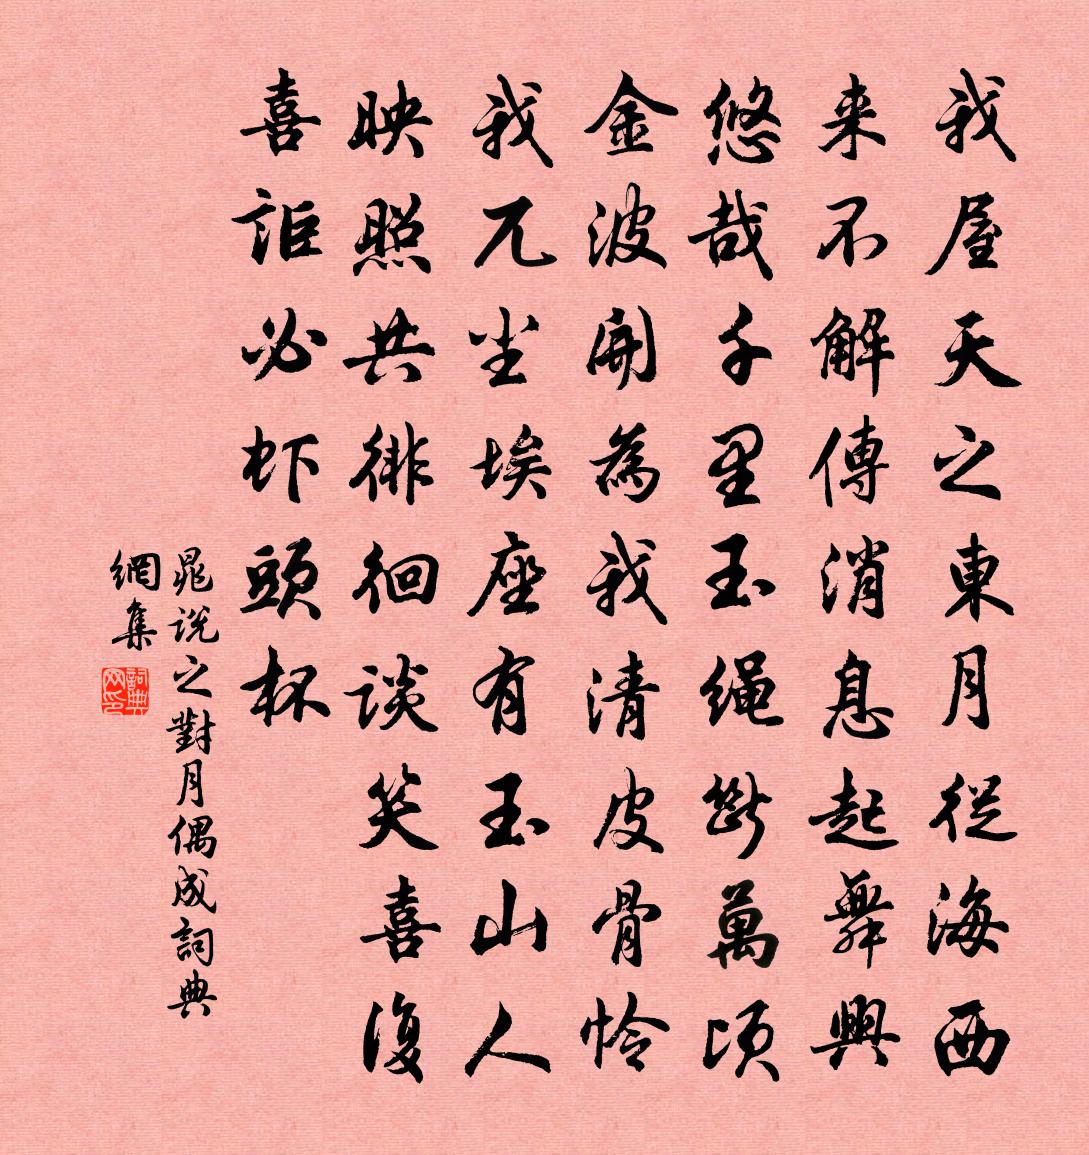 我屋天之東月從海西
来不解傳消息起舞興
悠哉千里玉繩斷萬頃
金波開為我清皮骨怜
我兀坐埃座有玉山人
映照共徘徊談笑喜復
喜詎必虾頭杯
晁說之對月偶成詞典
網集
詞典
网印